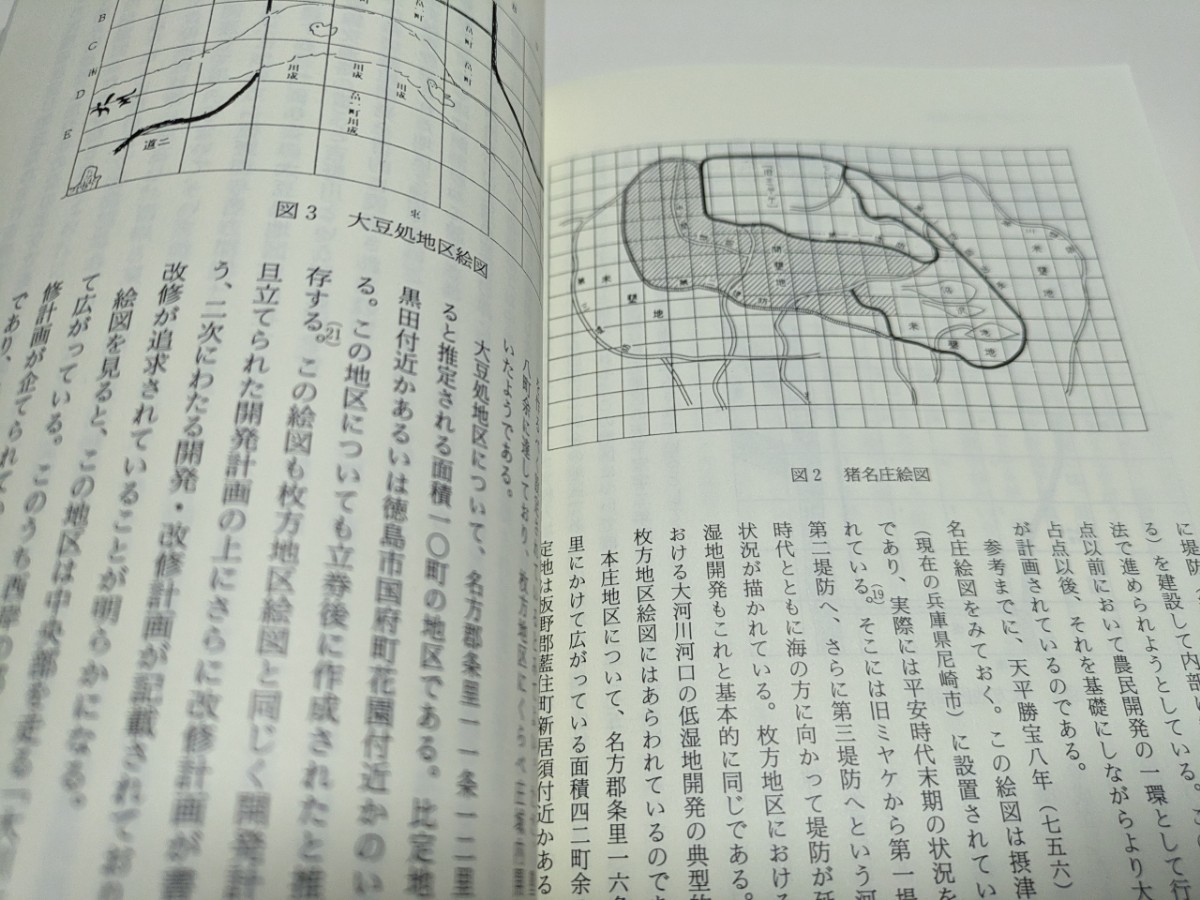 図2 猪名庄絵図
に堤防
る)を建設して内部
法で進められようとしている。こ
点以前において農民開発の一環として行
占点以後、それを基礎にしながらより大
が計画されているのである。
参考までに、天平勝宝八年(七五六)
名庄絵図をみておく。この絵図は摂津
(現在の兵庫県尼崎市)に設置されてい
であり、実際には平安時代末期の状況を
れている。(19)そこには旧ミヤケから第一堤
第二堤防へ、さらに第三堤防へという河
時代とともに海の方に向かって堤防が延
状況が描かれている。枚方地区におけ
湿地開発もこれと基本的に同じである。
おける大河川河口の低湿地開発の典型的
枚方地区絵図にはあらわれているので
本庄地区について、名方郡条里一六
里にかけて広がっている面積四二町余
定地は板野郡藍住町新居須付近かある
八町余に達しており、枚方地区にくらべ
いたようである。
大豆処地区について、名方郡条里一一条一二里
ると推定される面積一〇町の地区である。比定地
黒田付近かあるいは徳島市国府町花園付近かのい
る。この地区についても立券後に作成されたと推
存する。(21)この絵図も枚方地区絵図と同じく開発計
旦立てられた開発計画の上にさらに改修計画が書
う、二次にわたる開発・改修計画が記載されてお
改修が追求されていることが明らかになる。
絵図を見ると、この地区は中央部を
て広がっている。このうち西岸の
修計画が企てられて
であり、
図3 大豆処地区絵図
東
B
C
D
E
南
道二
川成
川成
川成
畠一町川成
畠一町
未墾地
未墾地
開墾地